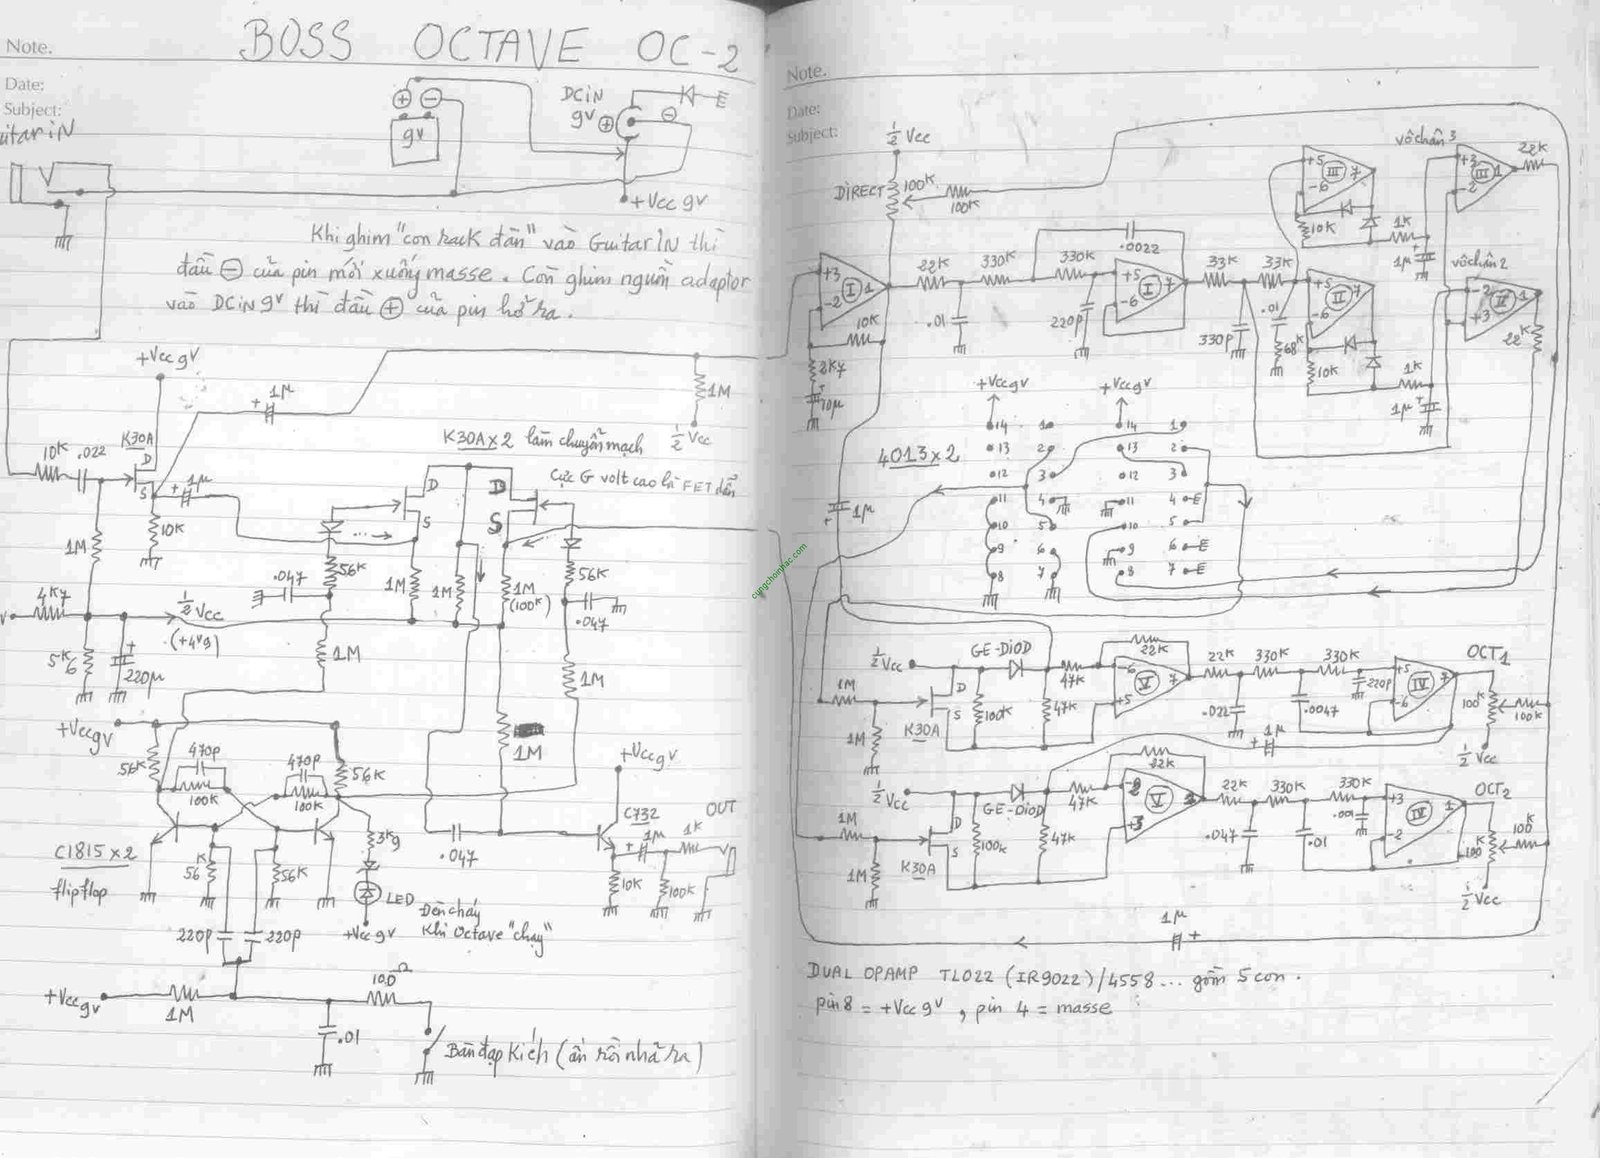 Note.
BOSS OCTAVE OC-2
Date:
Subject:
uitar iN
+ -
9V
DCiN
9V +
-
+Vcc 9V
Khi ghim "con rack đàn" vào Guitar IN thì
đầu - của pin mới xuống masse. Còn ghim nguồn adaptor
vào DCiN 9V thì đầu + của pin hở ra.
+Vcc 9V
1µ
+
1M
½ Vcc
10K
.022
K30A
D
S
+ 1µ
10K
1M
K30A x 2 làm chuyển mạch
Cực G volt cao là FET dẫn
D
S
D
S
56K
.047
1M
1M
1M
(100K)
56K
.047
4K7
½ Vcc
(+4V9)
5K6
+
220µ
1M
1M
1M
+Vcc 9V
56K
470p
100K
470p
100K
56K
+Vcc 9V
C1815 x 2
flip flop
56K
56K
3K9
LED
+Vcc 9V
Đèn cháy
Khi Octave "chạy"
.047
C732
+ 1µ
1K
OUT
10K
100K
220p
220p
+Vcc 9V
1M
100Ω
.01
Bàn đạp Kích (ấn rồi nhả ra)
Note.
Date:
Subject:
½ Vcc
DIRECT
100K
100K
+3
-2
I
1
10K
2K7
+
10µ
22K
.01
330K
330K
.0022
220p
+5
-6
I
7
33K
33K
330p
.01
68K
+5
-6
III
7
10K
1K
1µ
+
vô chân 3
+3
-2
III
1
22K
+5
-6
II
7
10K
1K
1µ
+
vô chân 2
-2
+3
II
1
22K
+Vcc 9V
+Vcc 9V
4013 x 2
14 1
13 2
12 3
11 4
10 5
9 6
8 7
14 1
13 2
12 3
11 4
10 5
9 6
8 7
1µ
+
cungchoinhac.com
½ Vcc
GE-DIOD
1M
1M
D
S
K30A
100K
47K
47K
22K
-6
+5
V
7
22K
330K
330K
.022
.0047
220p
+5
-6
IV
7
OCT1
100K
100K
½ Vcc
+ 1µ
½ Vcc
GE-DIOD
1M
1M
D
S
K30A
100K
47K
47K
22K
-2
+3
V
1
22K
330K
330K
.047
.01
.001
+3
-2
IV
1
OCT2
100K
100K
½ Vcc
1µ
+
DUAL OPAMP TL022 (IR9022)/4558... gồm 5 con.
pin 8 = +Vcc 9V, pin 4 = masse